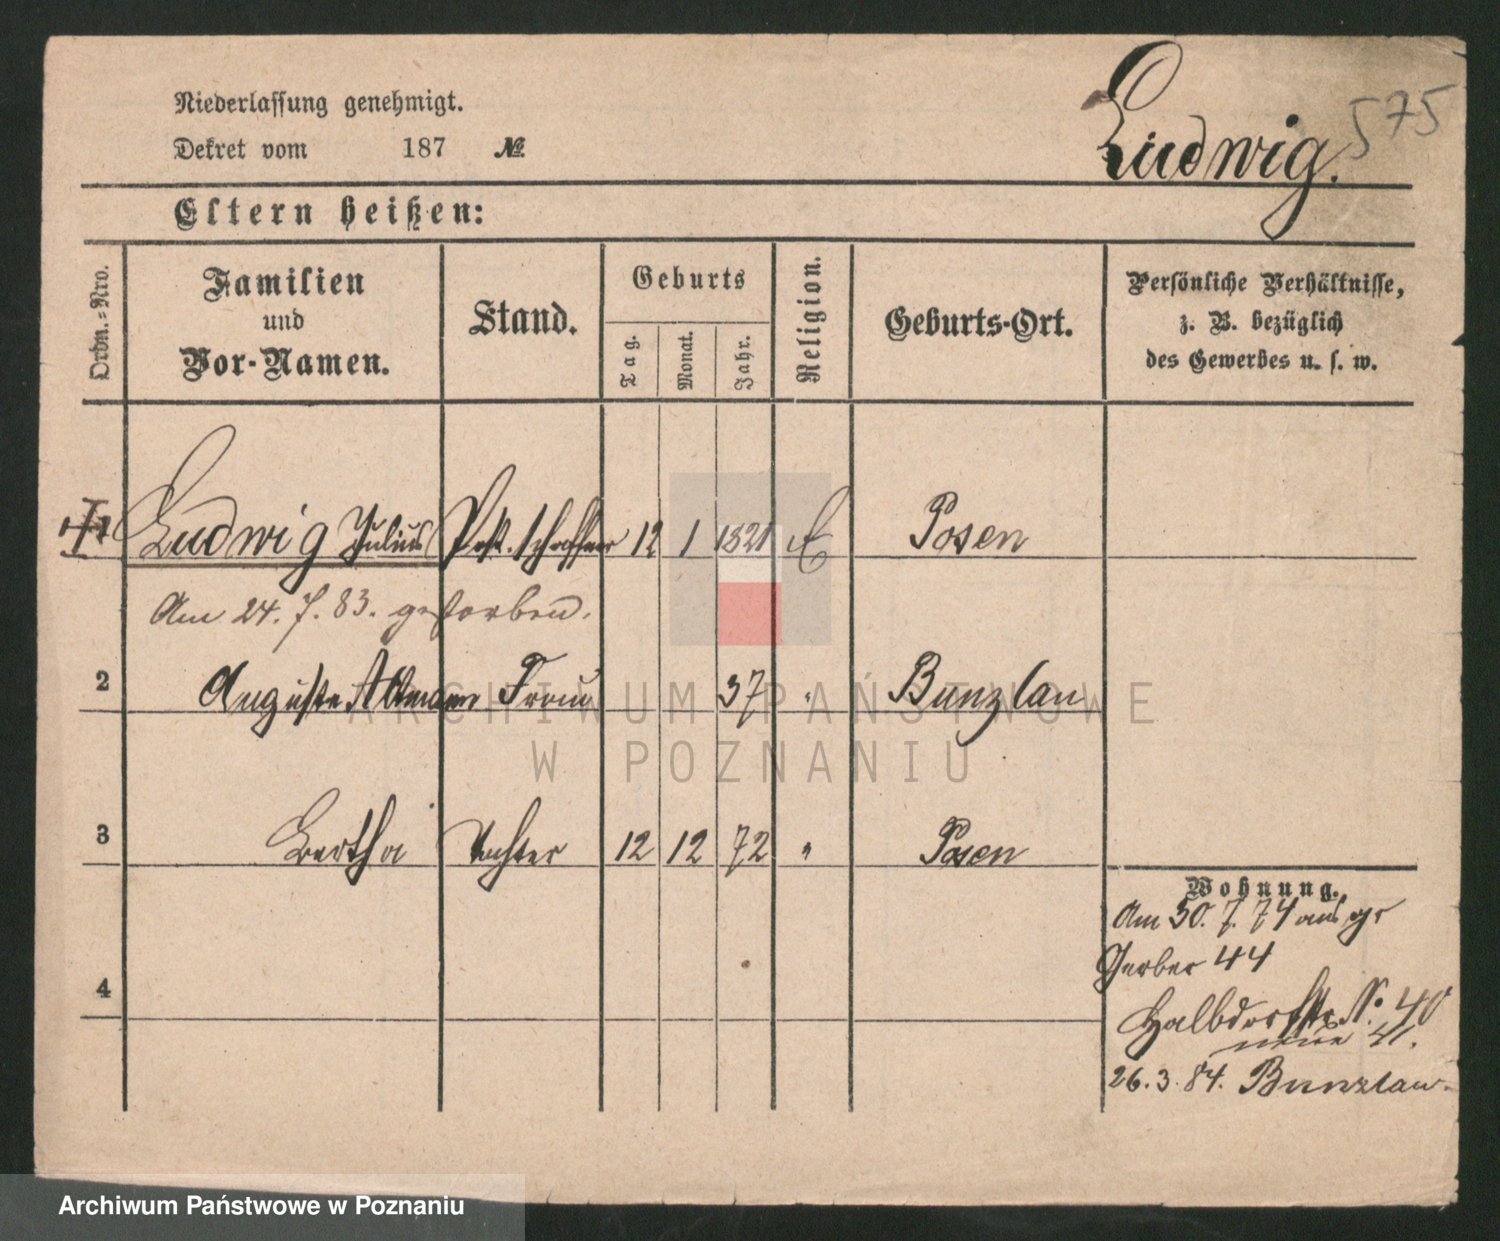 Niederlassung genehmigt.
Dekret vom 187 №
Ludwig. 575
Eltern heißen:
Ordn.-Nro.
Familien
und
Vor-Namen.
Stand.
Geburts
Tag.
Monat.
Jahr.
Religion.
Geburts-Ort.
Persönliche Verhältnisse,
z. B. bezüglich
des Gewerbes u. s. w.
1 Ludwig Julius Post-schaffner 12 1 1821 Posen
Am 24. 7. 83. gestorben.
2 Auguste Frau 37 " Bunzlau
3 Bertha Tochter 12 12 72 " Posen
Wohnung.
Am 30. 7. 74 aus gr
Gerber 44
4
Halbdorfstr. N: 40
neue 21.
26. 3. 84. Bunzlau.
ARCHIWUM PAŃSTWOWE
W POZNANIU
Archiwum Państwowe w Poznaniu